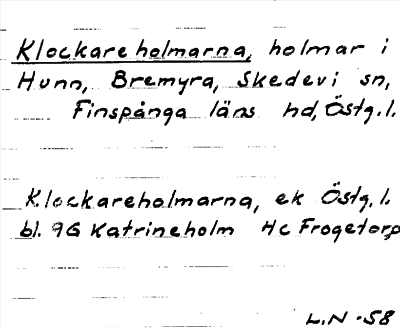 Klockareholmarna, holmar i
Hunn, Bremyra, Skedevi sn,
Finspånga läns hd, Östg.l.
Klockareholmarna, ek Östg.l.
bl. 9G Katrineholm Hc Frogetorp
L.N -58